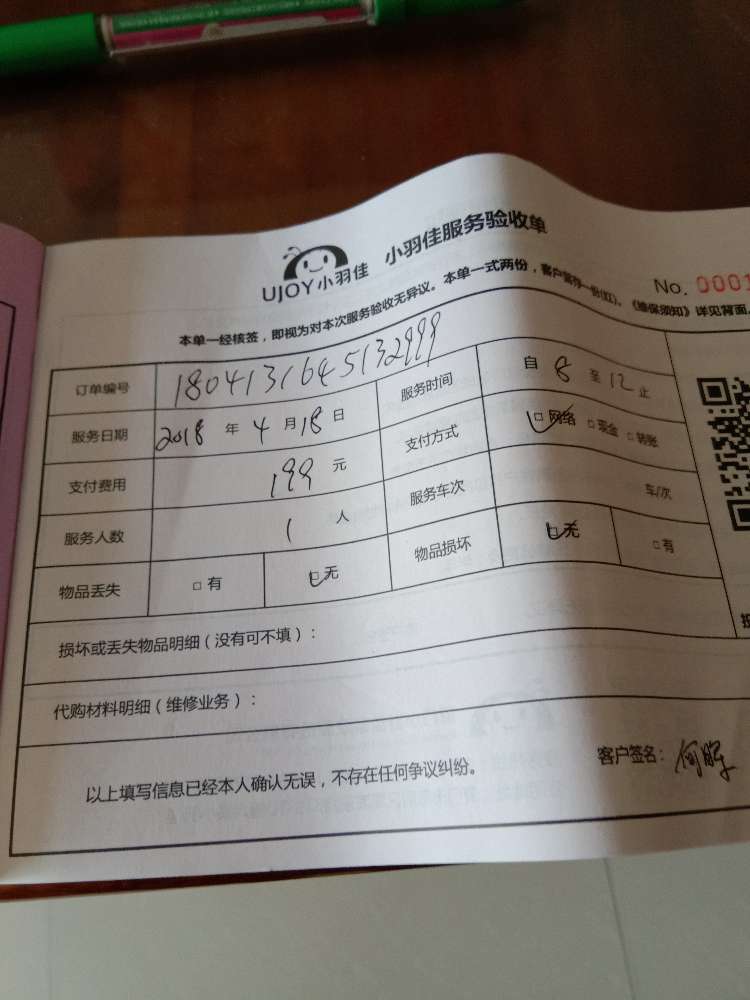 UJOY小羽佳 小羽佳服务验收单
No. 0001
本单一经核签，即视为对本次服务验收无异议。本单一式两份，客户留存一份(红)。《维保须知》详见背面。
订单编号 1804131645132999 服务时间 自 8 至 12 止
服务日期 2018 年 4 月 18 日 支付方式 □网络 □现金 □转账
支付费用 199 元 服务车次 车/次
服务人数 1 人 物品损坏 □无 □有
物品丢失 □有 □无
损坏或丢失物品明细（没有可不填）：
代购材料明细（维修业务）：
以上填写信息已经本人确认无误，不存在任何争议纠纷。
客户签名：何晖